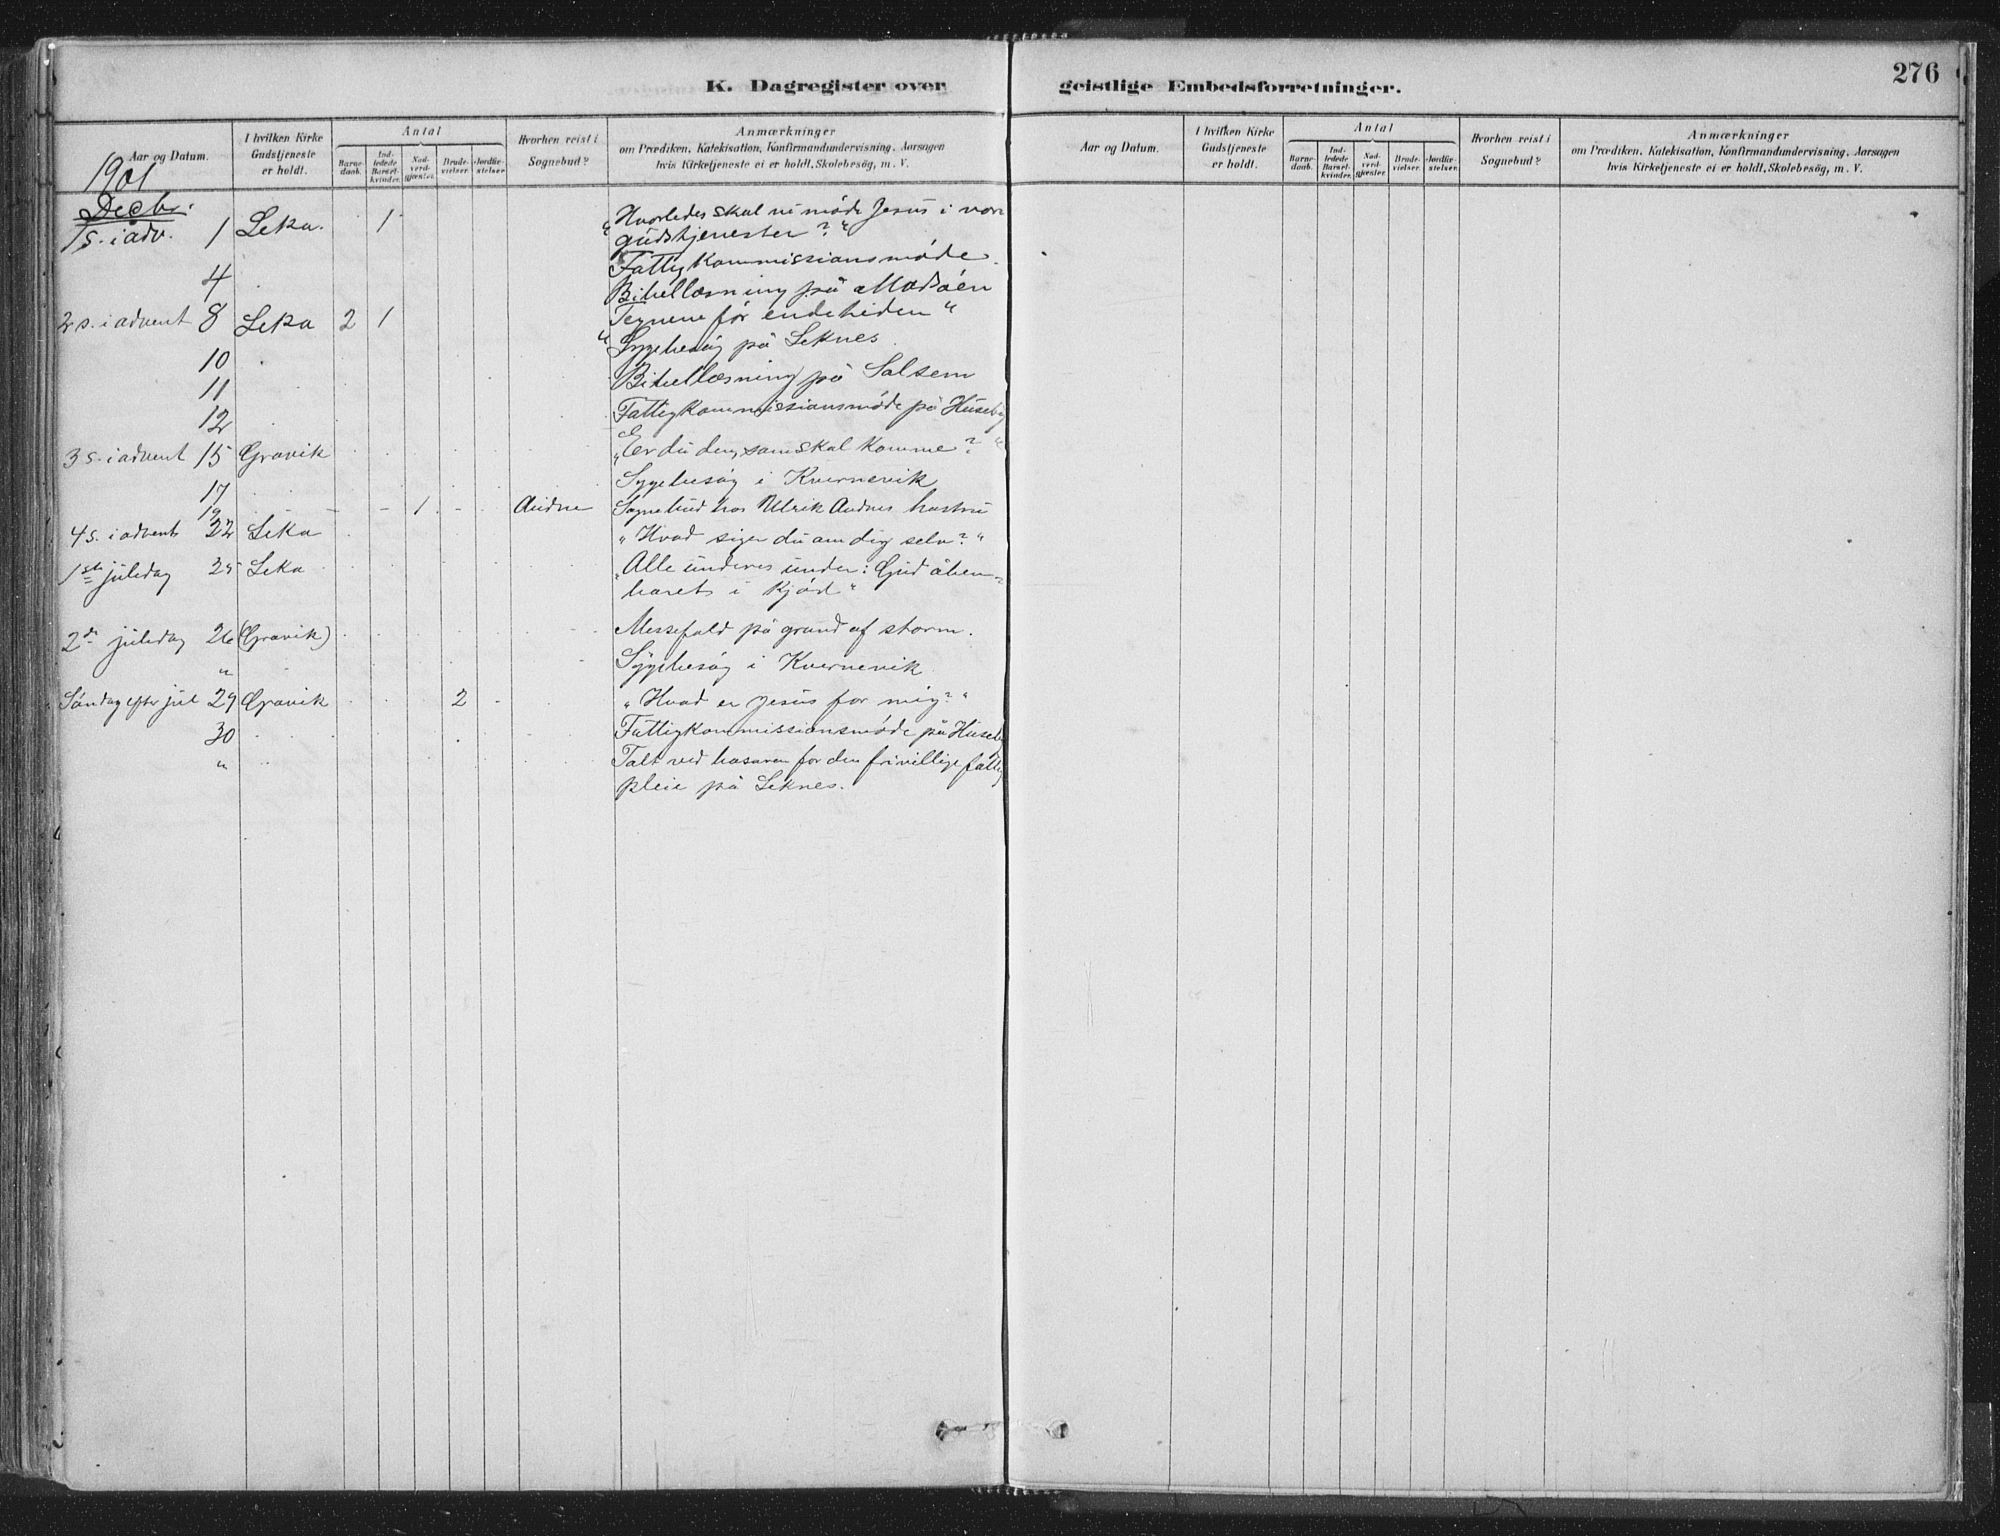 K. Dagregister over geistlige Embedsforretninger.
276
Aar og Datum.
I hvilken Kirke Gudstjeneste er holdt.
Antal
Barne-daab.
Ind-ledede Barsel-kvinder.
Nad-verd-gjæster.
Brude-vielser.
Jordfæ-stelser.
Hvorhen reist i Sognebud?
Anmærkninger
om Prædiken, Katekisation, Konfirmandundervisning, Aarsagen
hvis Kirketjeneste ei er holdt, Skolebesøg, m. V.
Aar og Datum.
I hvilken Kirke Gudstjeneste er holdt.
Antal
Barne-daab.
Ind-ledede Barsel-kvinder.
Nad-verd-gjæster.
Brude-vielser.
Jordfæ-stelser.
Hvorhen reist i Sognebud?
Anmærkninger
om Prædiken, Katekisation, Konfirmandundervisning, Aarsagen
hvis Kirketjeneste ei er holdt, Skolebesøg, m. V.
1901
Decbr.
1 s. i adv. 1 Leka. 1 "Hvorledes skal vi møde Jesus i vore
gudstjenester?"
4 Fattigkommissionsmøde.
Bibellæsning på Madsøen
2 s. i advent 8 Leka 2 1 "Tegnene for endetiden"
10 Sygebesøg på Leknes
11 Bibellæsning på Solsem
12 Fattigkommissionsmøde på Huseby
3 s. i advent 15 Gravik "Er du den, som skal komme?"
17 Sygebesøg i Kvernevik
19 1 Audne Sognebud hos Ulrik Audnes hustru
4 s. i advent 22 Leka "Hvad siger du om dig selv?"
1ste juledag 25 Leka "Alle underes under: Gud åben-
baret i kjød"
2den juledag 26 (Gravik) Messefald på grund af storm.
" Sygebesøg i Kvernevik
Søndag efter jul 29 Gravik 2 "Hvad er Jesus for mig?"
30 Fattigkommissionsmøde på Huseby
" Talt ved basaren for den frivillige fattig
pleie på Leknes.